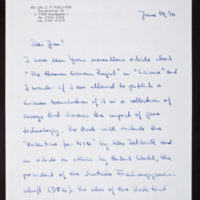 PD DR. E. P. FISCHER
June 14, 90
Dear Jim!
I have seen your marvellous article about
"The Human Genome Project" in "Science" and
I wonder if I am allowed to publish a
German translation of it in a collection of
essays that discuss the impact of gene
technology. The book will include the
by Max Delbrück and
an article on ethics by Hubert Markl, the
president of the Deutsche Forschungsgemein-
schaft (DFG). The idea of the book that